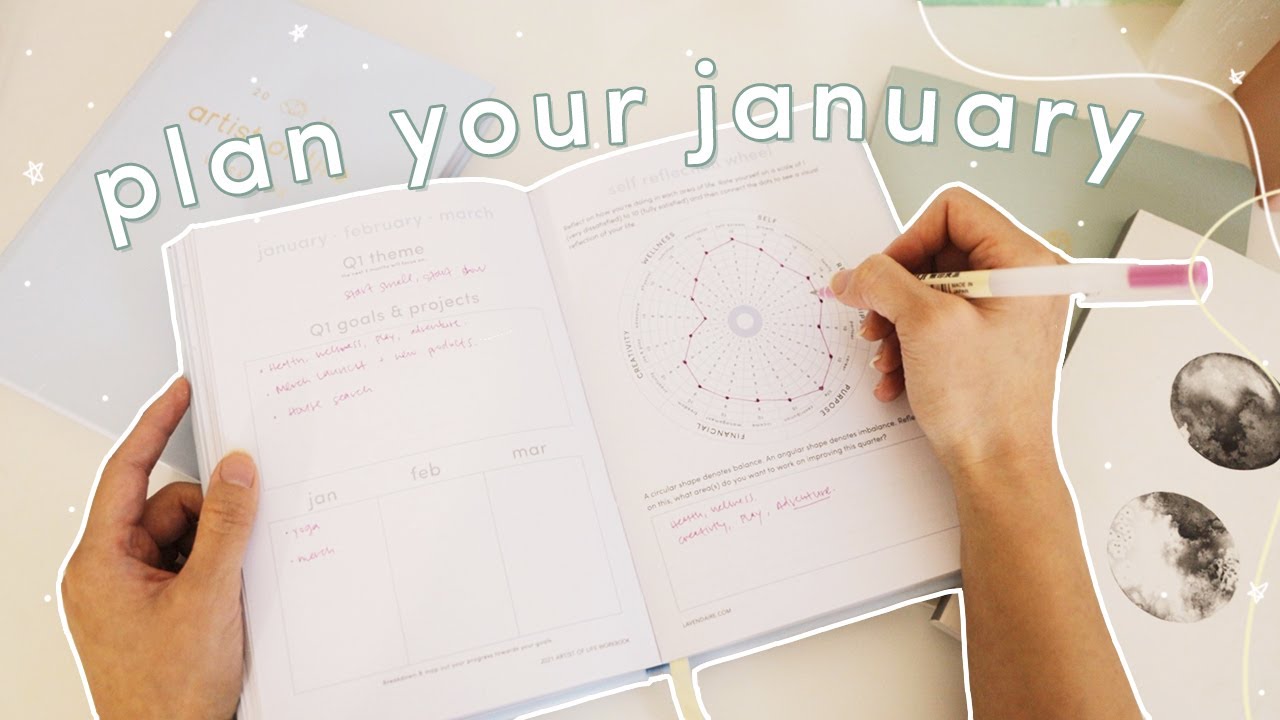 plan your january
20
artist of life
january · february · march
Q1 theme
start small, start slow
Q1 goals & projects
• Health, wellness, play, adventure.
• Merch launch + new products......
• House search
jan
feb
mar
• yoga
• merch
Breakdown & map out your progress towards your goals.
2021 ARTIST OF LIFE WORKBOOK
self reflection wheel
Reflect on how you're doing in each area of life. Rate yourself on a scale of 1
(very dissatisfied) to 10 (fully satisfied) and then connect the dots to see a visual
reflection of your life.
SELF
WELLNESS
CREATIVITY
FINANCIAL
PURPOSE
A circular shape denotes balance. An angular shape denotes imbalance. Reflect
on this, what area(s) do you want to work on improving this quarter?
Health, wellness
creativity, play, adventure.
LAVENDAIRE.COM
MADE IN
JAPAN